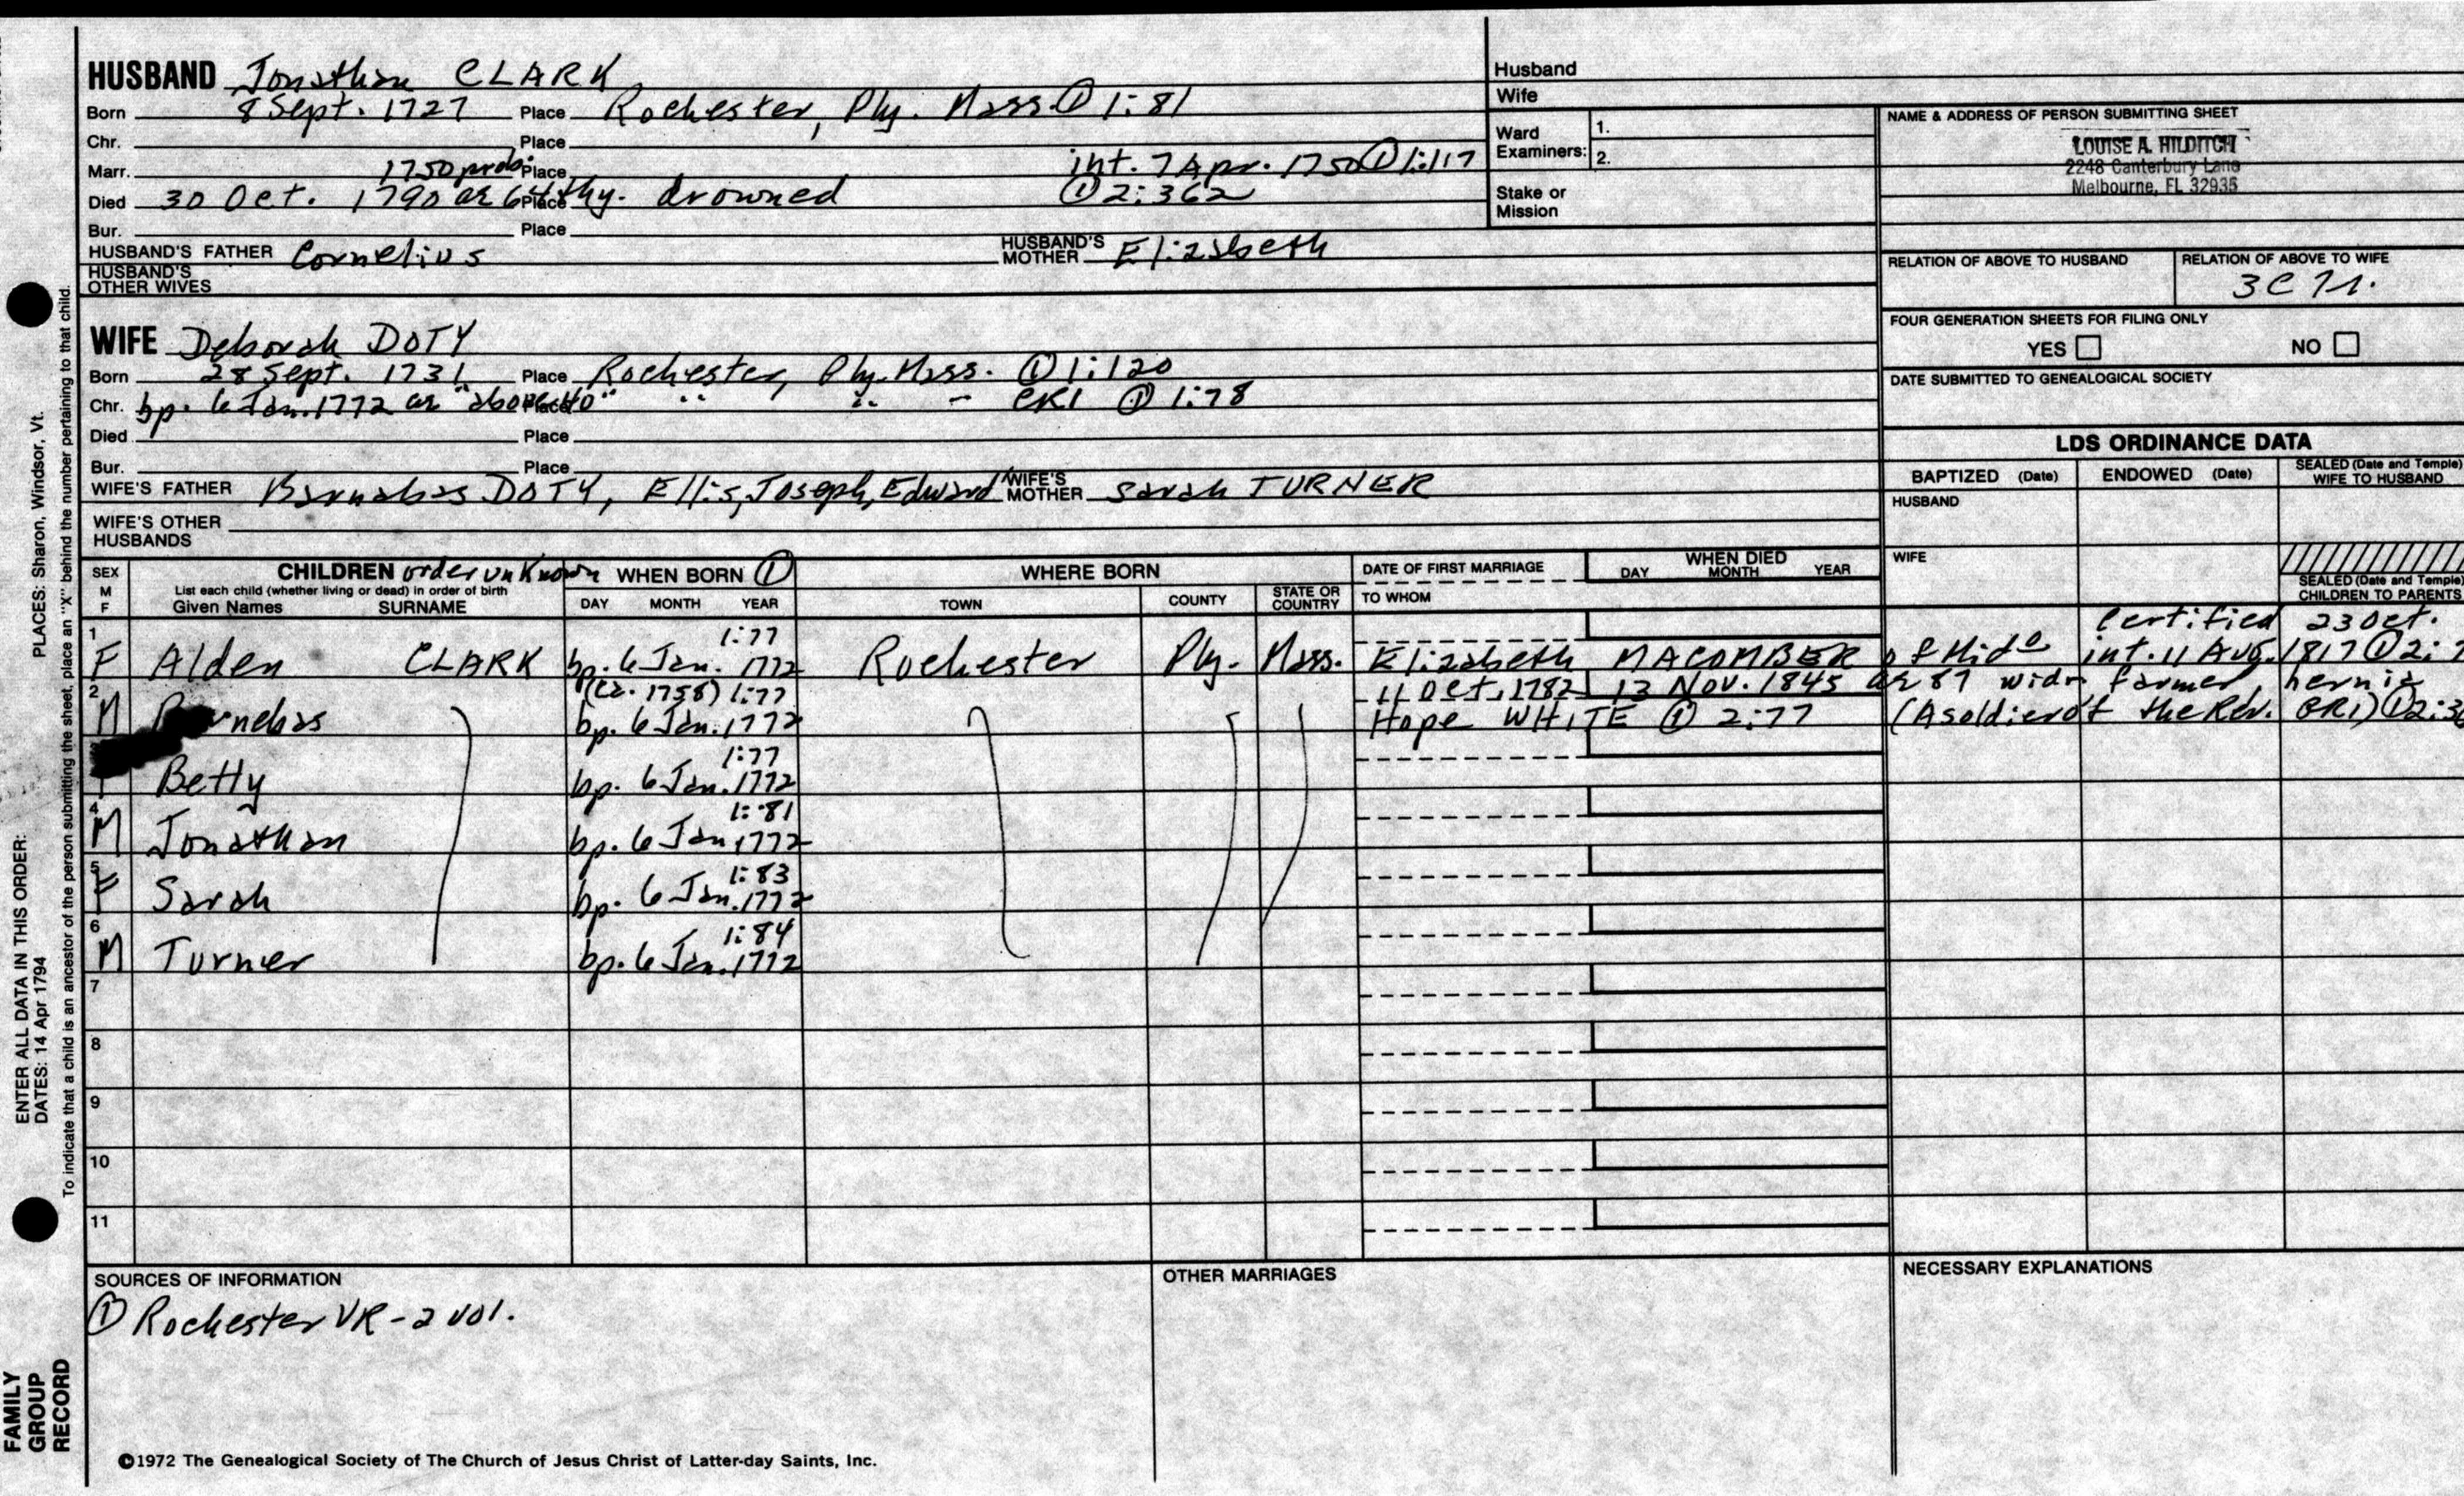 HUSBAND Jonathan CLARK
Born 8 Sept. 1727 Place Rochester, Ply. Mass. ① 1:81
Chr. Place
Marr. 1750 prob. Place int. 7 Apr. 1750 ① 1:117
Died 30 Oct. 1790 ae 64thy. Place drowned ① 2:362
Bur. Place
HUSBAND'S FATHER Cornelius HUSBAND'S MOTHER Elizabeth
HUSBAND'S OTHER WIVES
Husband
Wife
Ward Examiners: 1.
2.
Stake or Mission
NAME & ADDRESS OF PERSON SUBMITTING SHEET
LOUISE A. HILDITCH
2248 Canterbury Lane
Melbourne, FL 32935
RELATION OF ABOVE TO HUSBAND
RELATION OF ABOVE TO WIFE
3C 7r.
FOUR GENERATION SHEETS FOR FILING ONLY
YES NO
DATE SUBMITTED TO GENEALOGICAL SOCIETY
WIFE Deborah DOTY
Born 28 Sept. 1731 Place Rochester, Ply. Mass. ① 1:120
Chr. bp. 6 Jan. 1772 ae "above 40" Place " " " CR1 ① 1:78
Died Place
Bur. Place
WIFE'S FATHER Barnabas DOTY, Ellis, Joseph, Edward WIFE'S MOTHER Sarah TURNER
WIFE'S OTHER HUSBANDS
LDS ORDINANCE DATA
BAPTIZED (Date) ENDOWED (Date) SEALED (Date and Temple) WIFE TO HUSBAND
HUSBAND
WIFE
SEALED (Date and Temple) CHILDREN TO PARENTS
SEX M F
CHILDREN order unknown
List each child (whether living or dead) in order of birth
Given Names SURNAME
WHEN BORN ①
DAY MONTH YEAR
WHERE BORN
TOWN COUNTY STATE OR COUNTRY
DATE OF FIRST MARRIAGE
TO WHOM
WHEN DIED
DAY MONTH YEAR
1 1:77 Certified 23 Oct.
F Alden CLARK bp. 6 Jan. 1772 Rochester Ply. Mass. Elizabeth MACOMBER of Mido int. 11 Aug. 1817 ① 2:7
2 (ca. 1758) 1:77 11 Oct. 1782 13 Nov. 1845 ae 87 widr farmer, hernia
M nebas bp. 6 Jan. 1772 Hope WHITE ① 2:77 (A soldier of the Rev. GR1) ① 2:3
1:77
Betty bp. 6 Jan. 1772
4 1:81
M Jonathan bp. 6 Jan 1772
5 1:83
F Sarah bp. 6 Jan. 1772
6 1:84
M Turner bp. 6 Jan. 1772
7
8
9
10
11
SOURCES OF INFORMATION
① Rochester VR - 2 vol.
OTHER MARRIAGES
NECESSARY EXPLANATIONS
©1972 The Genealogical Society of The Church of Jesus Christ of Latter-day Saints, Inc.
ENTER ALL DATA IN THIS ORDER:
DATES: 14 Apr 1794
PLACES: Sharon, Windsor, Vt.
To indicate that a child is an ancestor of the person submitting the sheet, place an "X" behind the number pertaining to that child.
FAMILY
GROUP
RECORD